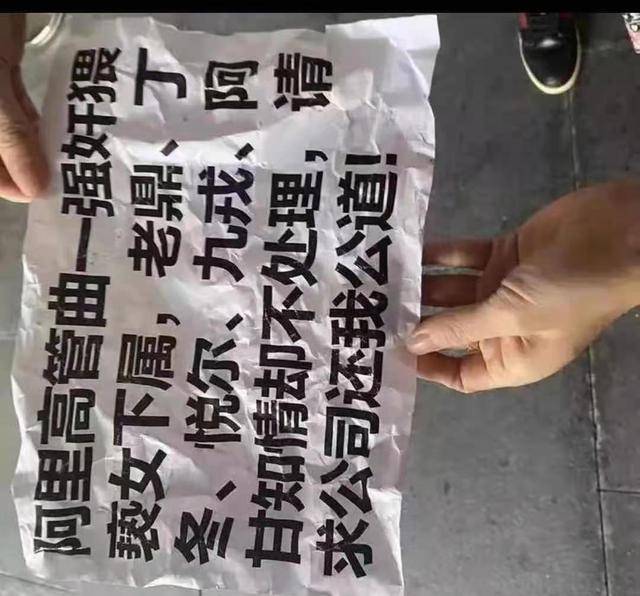 阿里高管曲一强奸猥
亵女下属，老鼎、丁
冬、悦尔、九戎、阿
甘知情却不处理，请
求公司还我公道!